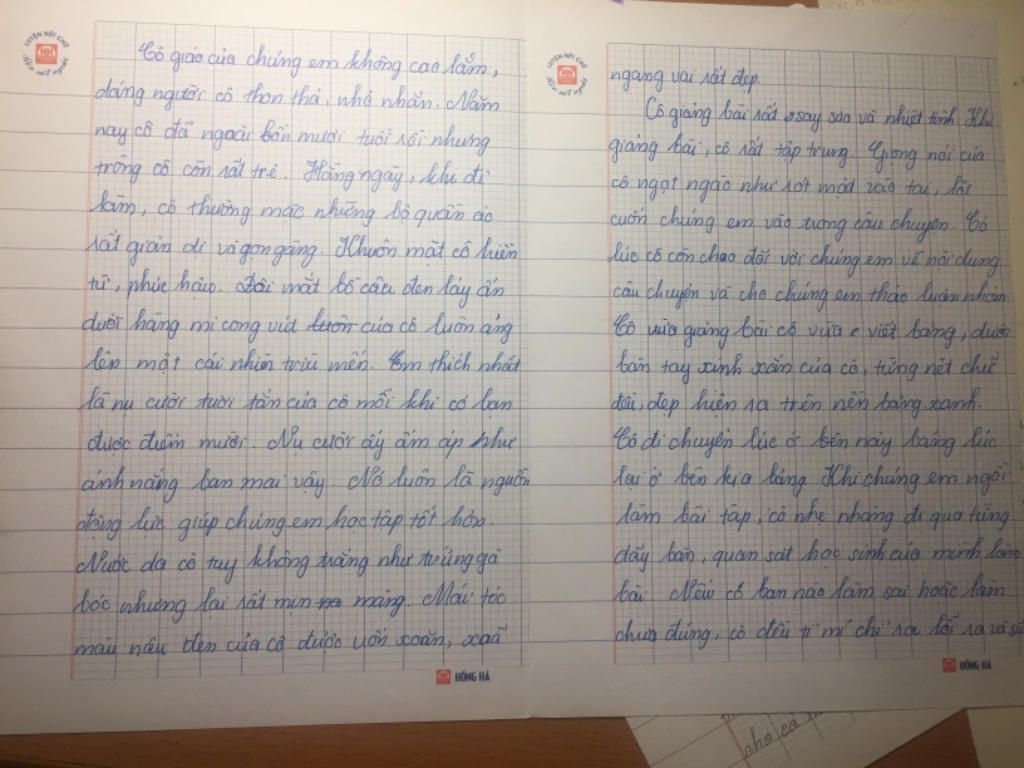 LUYỆN NÉT CHỮ
HH
Rèn nết người
Cô giáo của chúng em không cao lắm,
dáng người cô thon thả, nhỏ nhắn. Năm
nay cô đã ngoài bốn mươi tuổi rồi nhưng
trông cô còn rất trẻ. Hằng ngày, khi đi
làm, cô thường mặc những bộ quần áo
rất giản dị và gọn gàng. Khuôn mặt cô hiền
từ, phúc hậu. Đôi mắt bồ câu đen láy ẩn
dưới hàng mi cong vút luôn của cô luôn áng
lên một cái nhìn trìu mến. Em thích nhất
là nụ cười tươi tắn của cô mỗi khi có bạn
được điểm mười. Nụ cười ấy ấm áp như
ánh nắng ban mai vậy. Nó luôn là nguồn
động lực giúp chúng em học tập tốt hơn.
Nước da cô tuy không trắng như trứng gà
bóc nhưng lại rất mịn na màng. Mái tóc
màu nâu đen của cô được uốn xoăn, xoã
HỒNG HÀ
LUYỆN NÉT CHỮ
HH
Rèn nết người
ngang vai rất đẹp.
Cô giảng bài rất say sưa và nhiệt tình. Khi
giảng bài, cô rất tập trung. Giọng nói của
cô ngọt ngào như rót mật vào tai, lôi
cuốn chúng em vào trong câu chuyện. Có
lúc cô còn chao đổi với chúng em về nội dung
câu chuyện và cho chúng em thảo luận nhóm.
Cô vừa giảng bài cô vừa c viết bảng, dưới
bàn tay xinh xắn của cô, từng nét chữ
đều, đẹp hiện ra trên nền bảng xanh.
Cô di chuyển lúc ở bên này bảng lúc
lại ở bên kia bảng Khi chúng em ngồi
làm bài tập, cô nhẹ nhàng đi qua từng
dãy bàn, quan sát học sinh của mình làm
bài. Nếu có bạn nào làm sai hoặc làm
chưa đúng, cô đều tỉ mỉ chỉ ra lỗi ra và
HỒNG HÀ